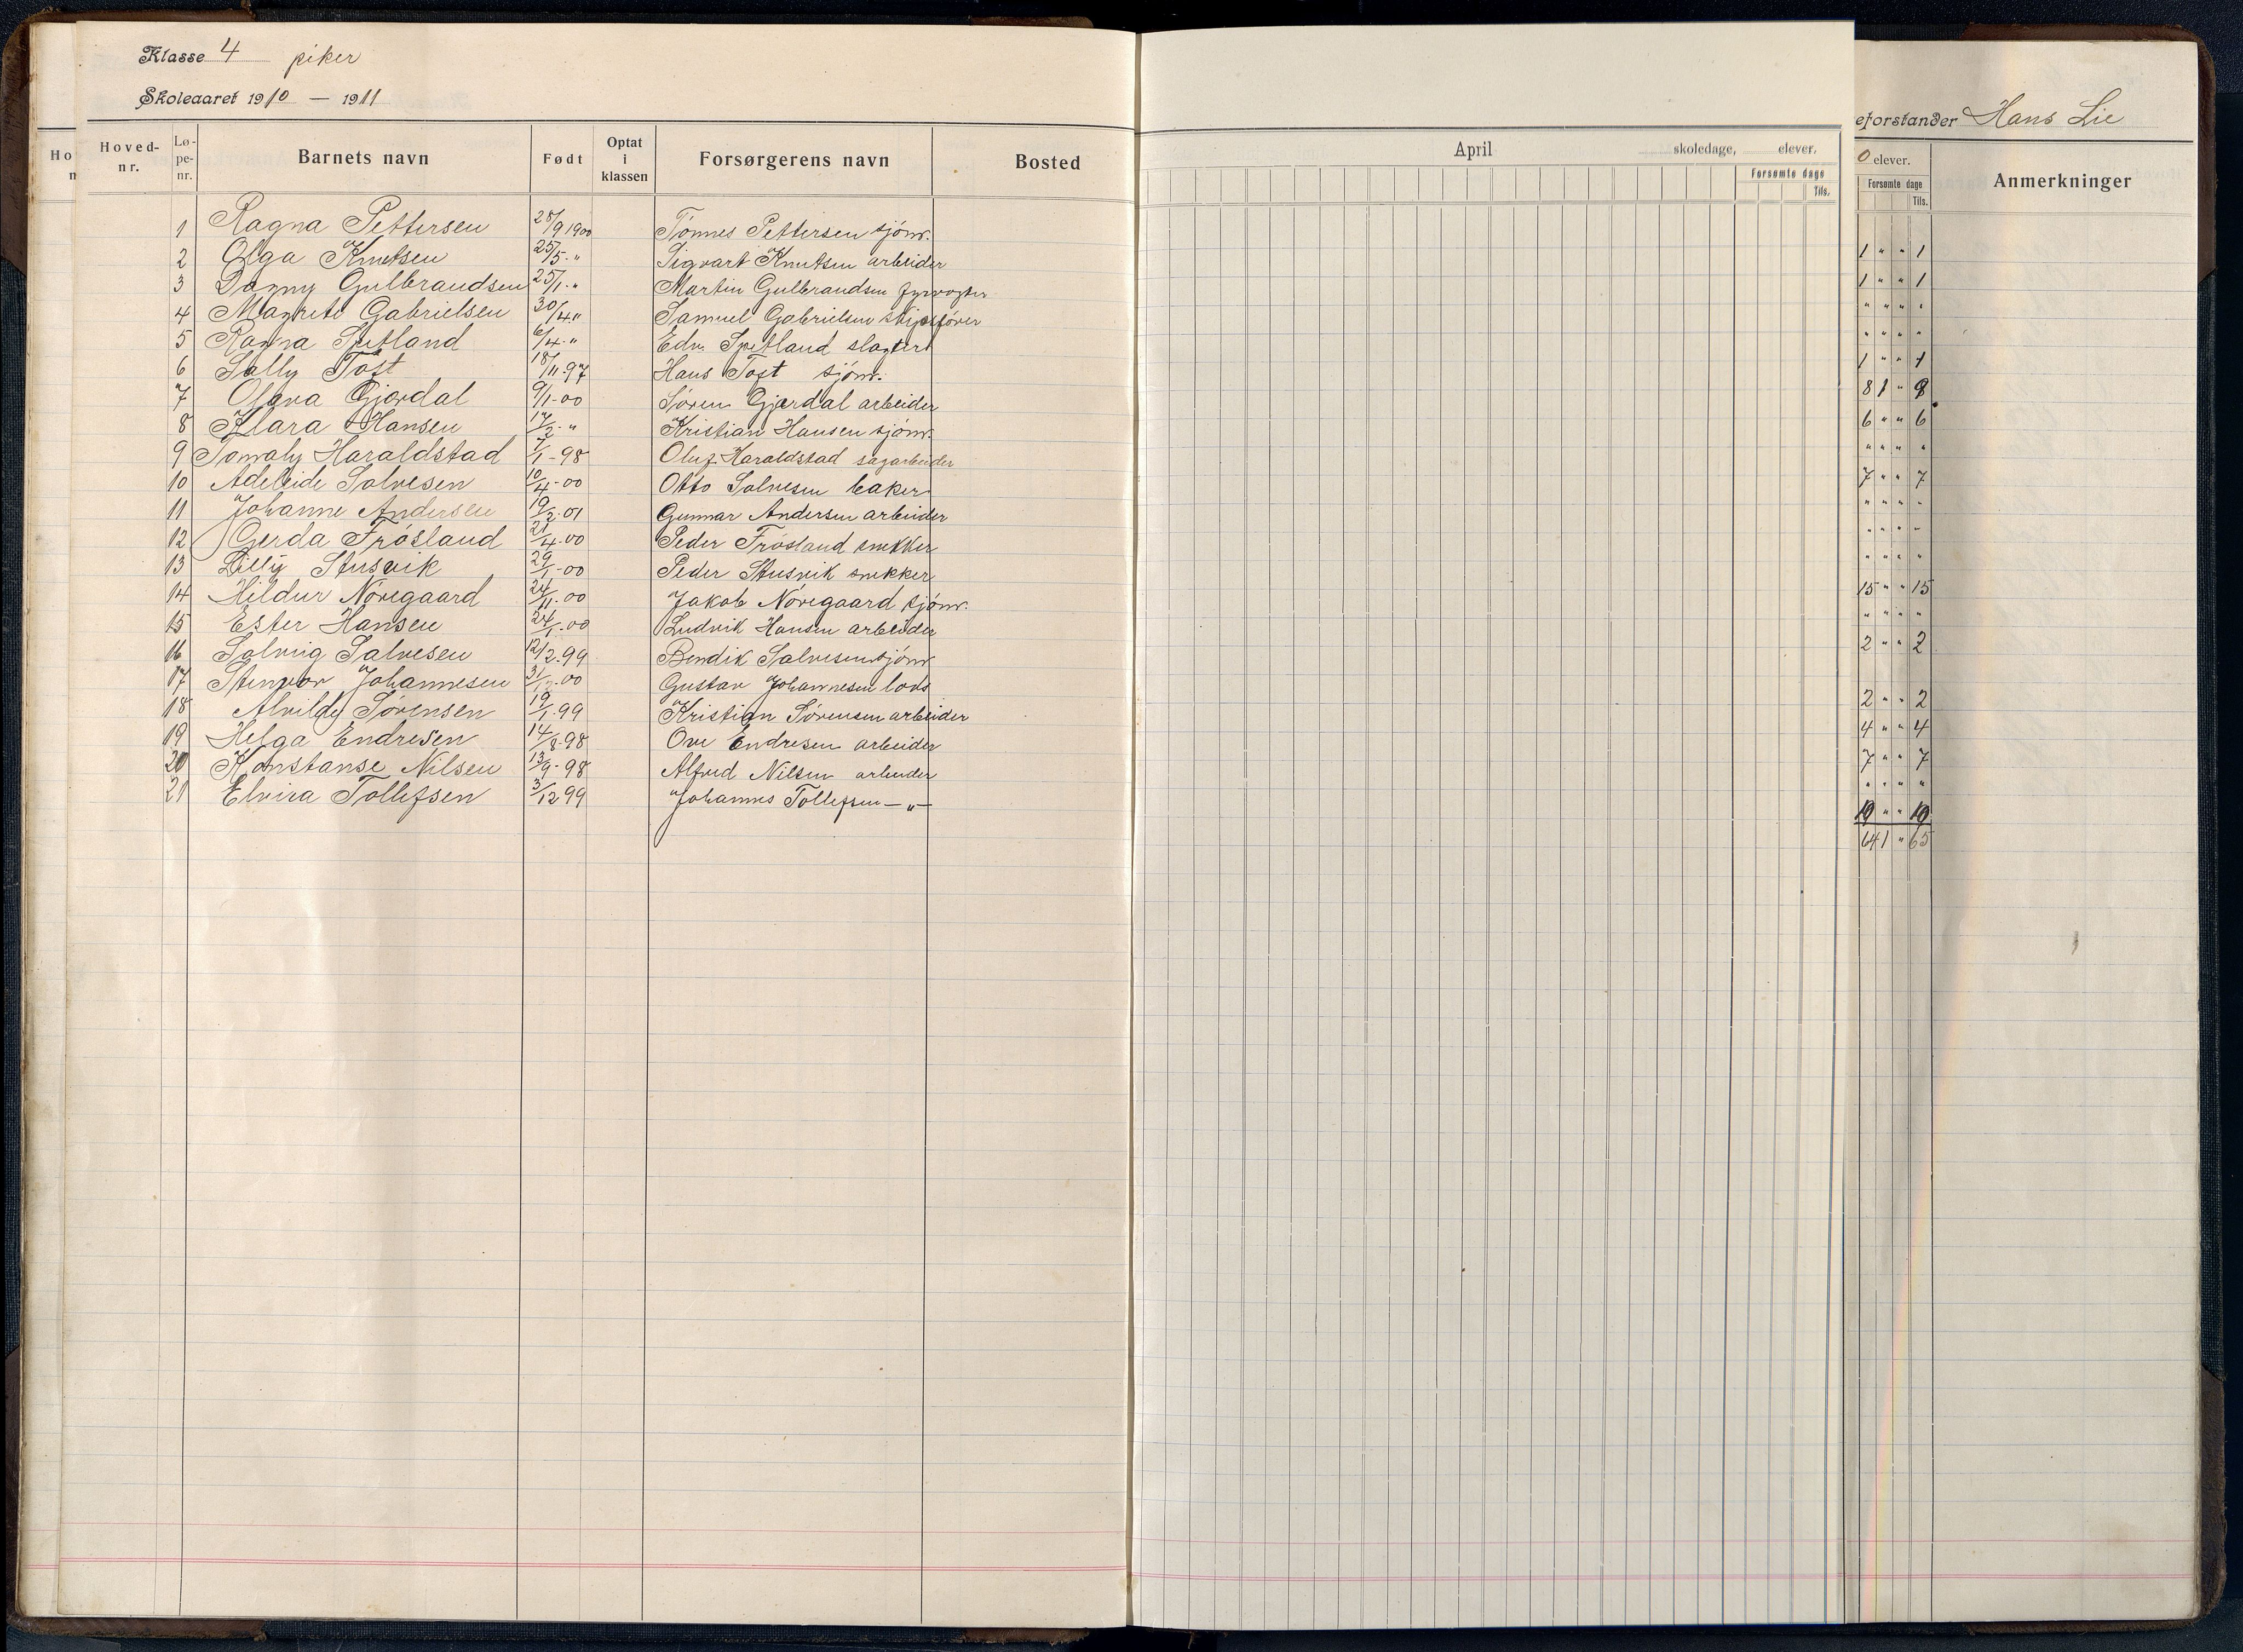 Klasse 4 piker
Skoleaaret 1910 — 1911
Ho
n
Hoved-nr. Lø-pe-nr. Barnets navn Født Optat i klassen Forsørgerens navn Bosted
1 Ragna Pettersen 28/9 1900 Tønnes Pettersen sjøm.
2 Olga Knutsen 25/5 - " Sigvart Knutsen arbeider
3 Dagny Gulbrandsen 25/1 - " Martin Gulbrandsen fyrvogter
4 Magrete Gabrielsen 30/4 " Samuel Gabrielsen skipsfører
5 Ragna Spetland 6/4 - " Edv. Spetland slagter
6 Sally Toft 18/11-97 Hans Toft sjøm.
7 Olava Gjerdal 9/1-00 Søren Gjerdal arbeider
8 Klara Hansen 17/2 - " Kristian Hansen sjøm.
9 Haraldstad 7/1-98 Oluf Haraldstad sagarbeider
10 Adeleide Salvesen 10/4-00 Otto Salvesen baker
11 Johanne Andersen 19/2-01 Gunnar Andersen arbeider
12 Gerda Frøsland 21/4-00 Peder Frøsland snekker
13 Lilly Stusvik 29/1-00 Peder Stusvik snekker
14 Hildur Noregaard 24/11-00 Jakob Noregaard sjøm.
15 Ester Hansen 24/1-00 Ludvik Hansen arbeider
16 Solveig Salvesen 12/2.99 Bendik Salvesen sjøm
17 Stenvor Johannesen 31/12-00 Gustav Johannesen lods
18 Alvilde Sørensen 19/1.99 Kristian Sørensen arbeider
19 Helga Endresen 14/8-98 Ove Endresen arbeider
20 Konstanse Nilsen 13/9-98 Alfred Nilsen arbeider
21 Elvira Tollefsen 3/12 99 Johannes Tollefsen — " —
April skoledage, elever.
Forsømte dage
Tils.
eforstander Hans Lie
0 elever.
Forsømte dage
Tils.
Anmerkninger
1 " " 1
1 " " 1
" " " "
" " " "
1 " " 1
8 1 " 9
6 " " 6
" " " "
7 " " 7
" " " "
" " " "
" " " "
15 " " 15
" " " "
2 " " 2
2 " " 2
4 " " 4
7 " " 7
" " " "
10 " " 10
64 1 " 65